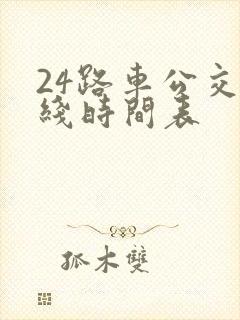 24路車公交
綫時間表
孤木雙